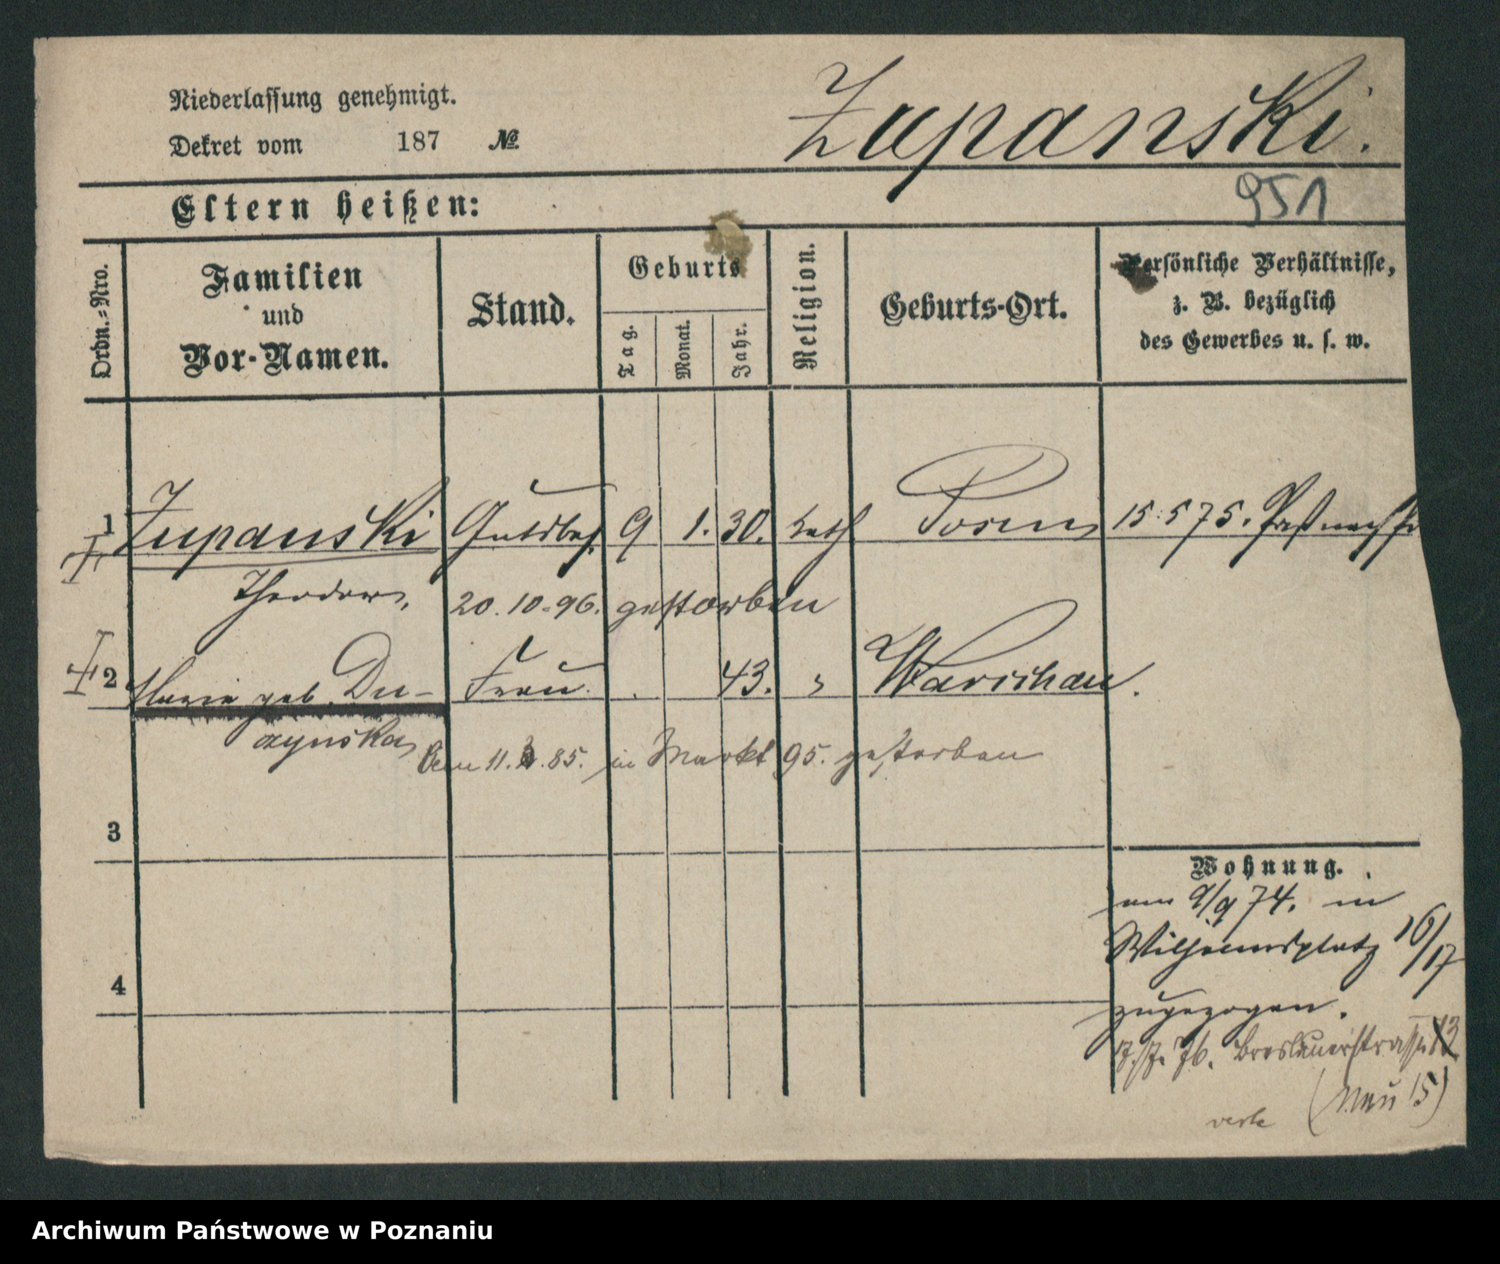 Niederlassung genehmigt.
Zupanski.
Dekret vom 187 №
951
Eltern heißen:
Ordn.-Nro.
Familien und Vor-Namen.
Stand.
Geburts
Tag.
Monat.
Jahr.
Religion.
Geburts-Ort.
Persönliche Verhältnisse,
z. B. bezüglich
des Gewerbes u. s. w.
1 Zupanski Gutsbes. 9 1. 30. kath Posen 15.5 75. Paß nach
Theodor, 20.10.96. gestorben
2 Marie geb. Du- Frau 43. " Warschau.
zynska 11. 85. in Markt 95. gestorben
3
4
Wohnung.
am 9/9 74. in
Wilhelmsplatz 16/17
zugezogen.
76. Breslauerstrasse 13
(Neu 15)